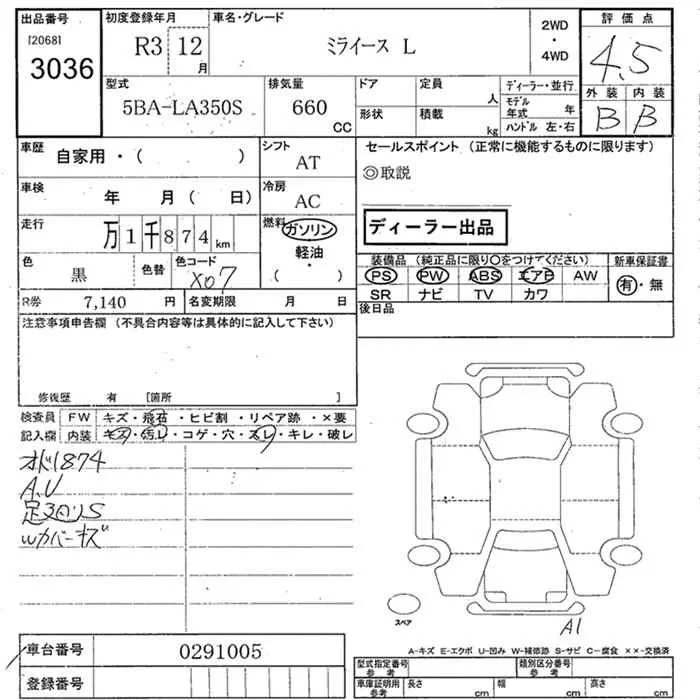 出品番号
[2068]
3036
初度登録年月
R3 12月
車名・グレード
ミライース L
2WD
・
4WD
評価点
4.5
外装 内装
B B
型式
5BA-LA350S
排気量
660
CC
ドア
形状
定員
人
積載
kg
ディーラー・並行
モデル年式 年
ハンドル 左・右
車歴
自家用・( )
シフト
AT
セールスポイント (正常に機能するものに限ります)
◎取説
車検
年 月( 日)
冷房
AC
走行
万1千874km
燃料
ガソリン
軽油
・
( )
ディーラー出品
色
黒
色替
色コード
X07
装備品 (純正品に限り○をつけてください)
PS PW ABS エアB AW
SR ナビ TV カワ
新車保証書
有・無
R券 7,140 円
名変期限 月 日
後日品
注意事項申告欄 (不具合内容等は具体的に記入して下さい)
修復歴 有 [箇所 ]
検査員
記入欄
FW キズ・飛石・ヒビ割・リペア跡・×要
内装 キズ・汚レ・コゲ・穴・スレ・キレ・破レ
オド1874
A.U
足回りS
Wカバーキズ
スペア
A1
A-キズ E-エクボ U-凹み W-補修跡 S-サビ C-腐食 ××-交換済
車台番号
0291005
登録番号
型式指定番号
参考
類別区分番号
参考
車庫証明用
参考
長さ cm
幅 cm
高さ cm